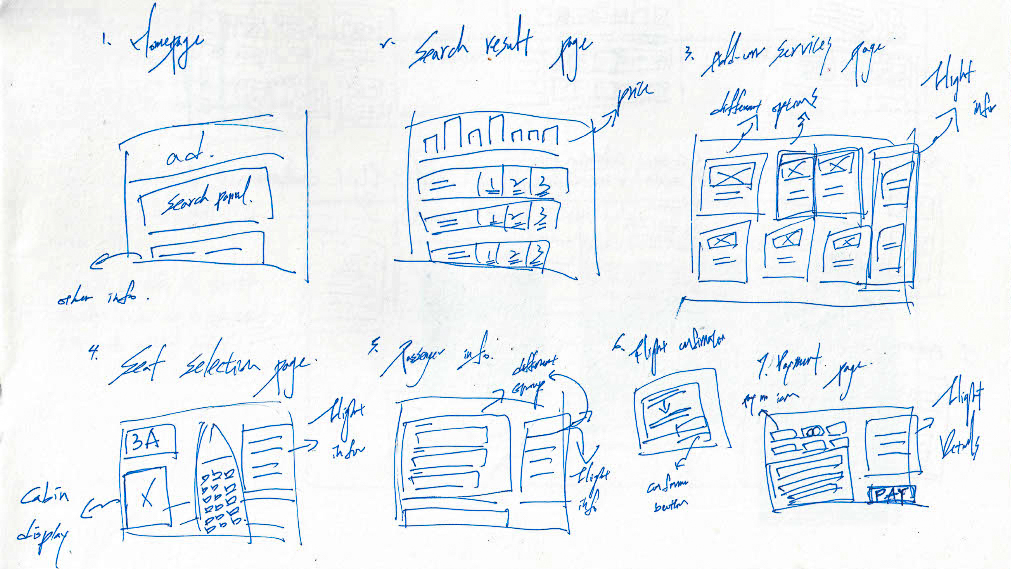 1. Homepage
ad.
Search panel.
other info.
2. Search result page
price
1 2 3
1 2 3
1 2 3
3. Add-on services page
different options
flight info
4. Seat selection page.
3A
flight info
Cabin display
5. Passenger info.
different
flight info
6. flight confirmation
confirm button
7. Payment page.
flight Details
PAY